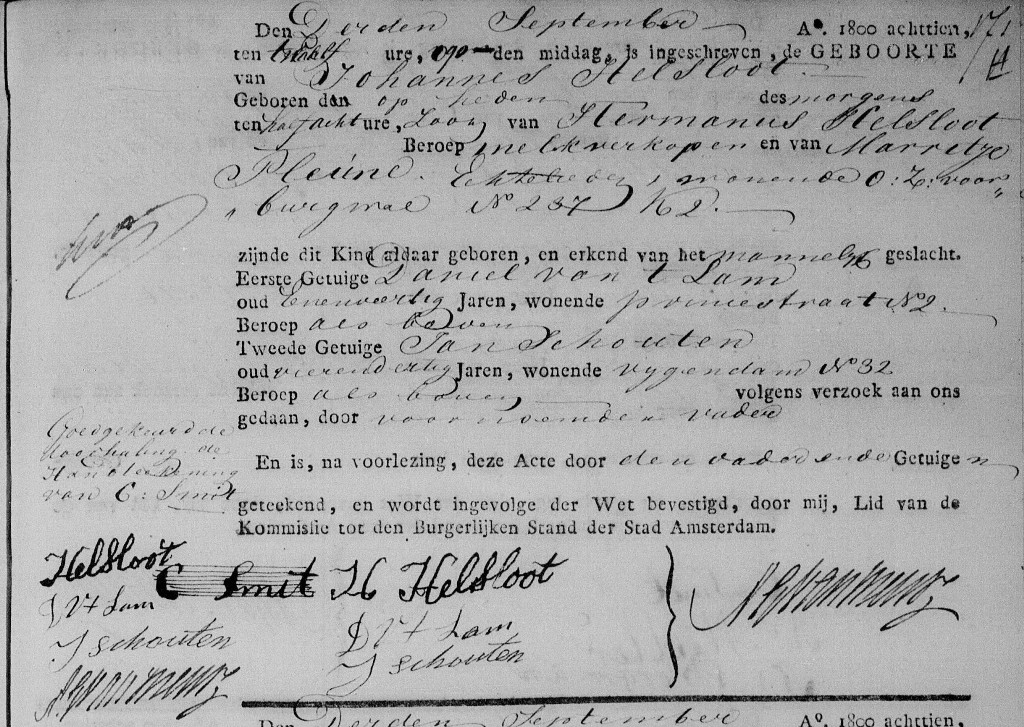 Den Derden September A°. 1800 achttien,
ten twaalf ure, op den middag, is ingeschreven, de GEBOORTE
van Johannes Helsloot
Geboren den op heden des morgens
ten half acht ure, Zoon van Hermanus Helsloot
Beroep melkverkoper en van Marretje
Pleúne. Echtelieden, wonende O: Z: voor„
„burgwal N° 237 K 2.
zijnde dit Kind aldaar geboren, en erkend van het mannelyk geslacht.
Eerste Getuige Daniel van 't Lam
oud Eenenveertig Jaren, wonende princestraat N° 2.
Beroep als boven
Tweede Getuige Jan Schouten
oud vierendertig Jaren, wonende vygendam N° 32
Beroep als boven volgens verzoek aan ons
gedaan, door voornoemden vader
Goedgekeurd de
doorhaling de
Handteekening
van C: Smit
En is, na voorlezing, deze Acte door den vader en de Getuigen
geteekend, en wordt ingevolge der Wet bevestigd, door mij, Lid van de
Kommissie tot den Burgerlijken Stand der Stad Amsterdam.
Helsloot C Smit H Helsloot
D V t Lam D V t Lam
J Schouten J Schouten
Den Derden September A°. 1800 achttien,